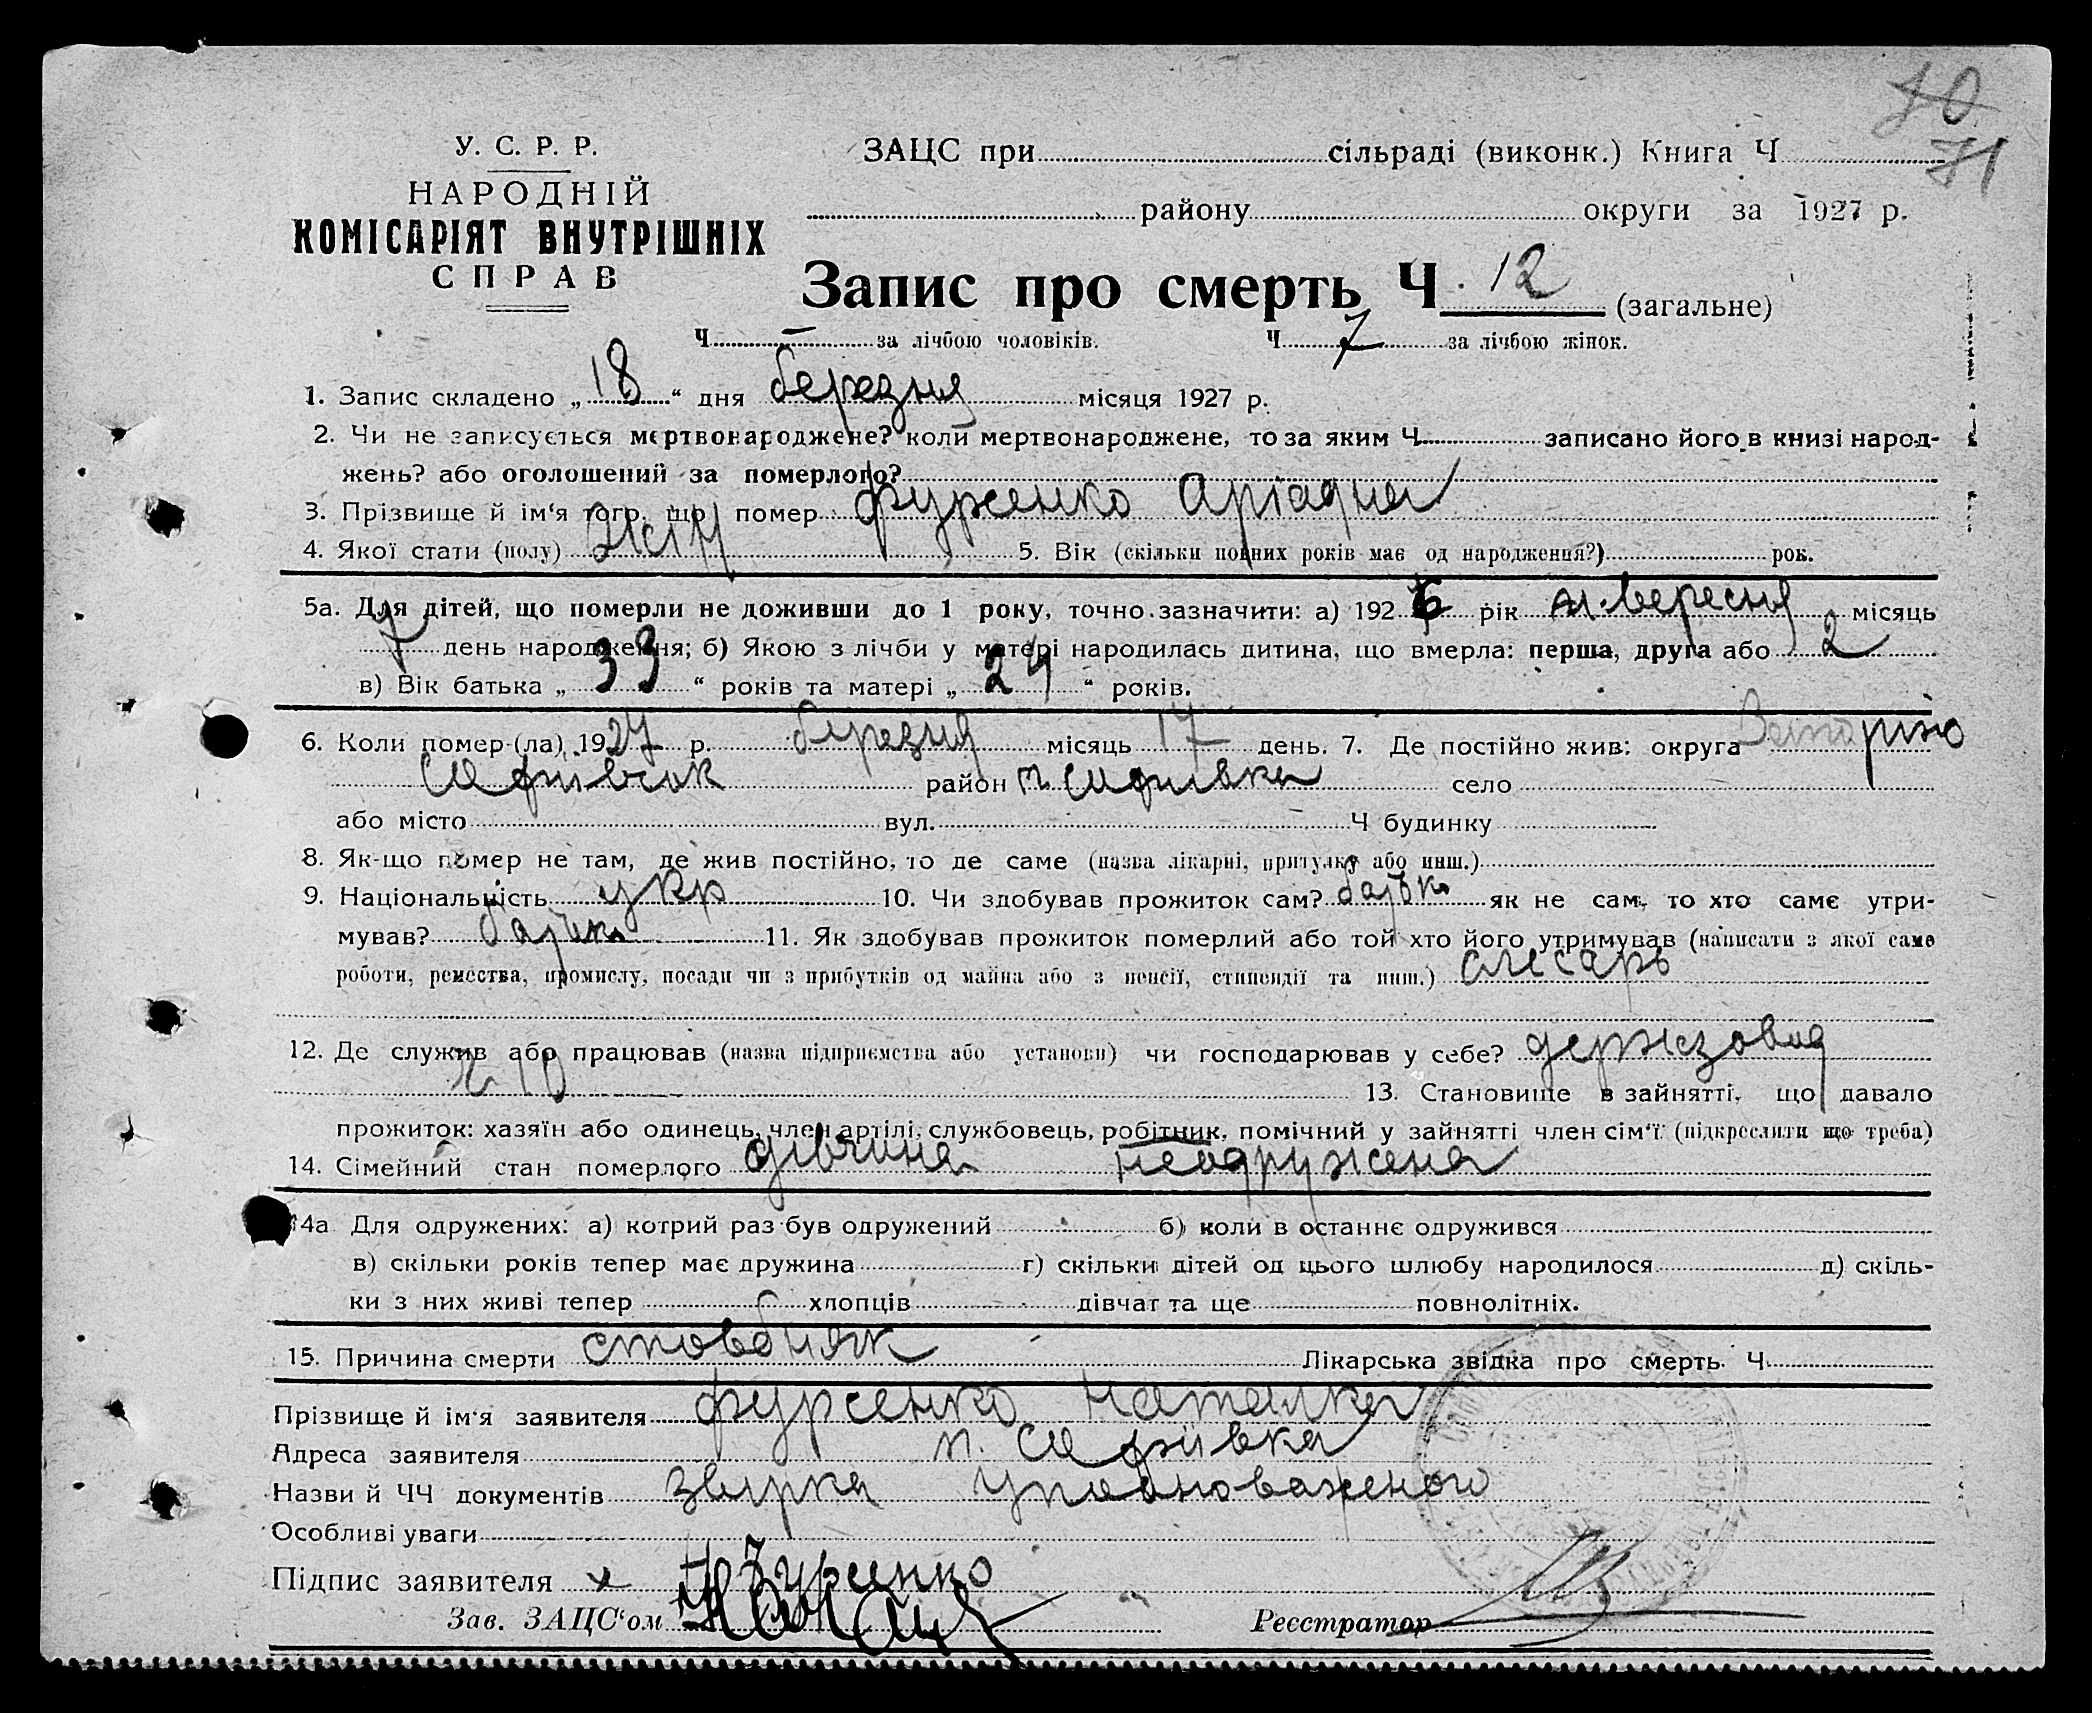 70
71
У. С. Р. Р.
НАРОДНІЙ
КОМІСАРІЯТ ВНУТРІШНІХ
СПРАВ
ЗАЦС при сільраді (виконк.) Книга Ч
району округи за 1927 р.
Запис про смерть Ч. 12 (загальне)
Ч. — за лічбою чоловіків. Ч. 7 за лічбою жінок.
1. Запис складено „18“ дня березня місяця 1927 р.
2. Чи не записується мертвонароджене? коли мертвонароджене, то за яким Ч. записано його в книзі народ-
жень? або оголошений за померлого?
3. Прізвище й ім‘я того, що помер Фурсенко Аріадна
4. Якої стати (полу) жін 5. Вік (скільки повних років має од народження?) рок.
5а. Для дітей, що померли не доживши до 1 року, точно зазначити: а) 1926 рік вересня місяць
7 день народження; б) Якою з лічби у матері народилась дитина, що вмерла: перша, друга або 2
в) Вік батька „33“ років та матері „24“ років.
6. Коли помер (ла) 1927 р. березня місяць 17 день. 7. Де постійно жив: округа
район село
або місто вул. Ч будинку
8. Як-що помер не там, де жив постійно, то де саме (назва лікарні, притулку або инш.)
9. Національність укр 10. Чи здобував прожиток сам? батько як не сам, то хто саме утри-
мував? батько 11. Як здобував прожиток померлий або той хто його утримував (написати з якої саме
роботи, ремества, промислу, посади чи з прибутків од майна або з пенсії, стипендії та инш.) слесарь
12. Де служив або працював (назва підприємства або установи) чи господарював у себе? держзавод
№ 10 13. Становище в зайнятті, що давало
прожиток: хазяїн або одинець, член артілі, службовець, робітник, помічний у зайнятті член сім‘ї (підкреслити що треба)
14. Сімейний стан померлого дівчина неодружена
14а Для одружених: а) котрий раз був одружений б) коли в останнє одружився
в) скільки років тепер має дружина г) скільки дітей од цього шлюбу народилося д) скіль-
ки з них живі тепер хлопців дівчат та ще повнолітніх.
15. Причина смерти стовбняк Лікарська звідка про смерть Ч.
Прізвище й ім‘я заявителя Фурсенко Наталка
Адреса заявителя
Назви й ЧЧ документів уповноваженого
Особливі уваги
Підпис заявителя х Н Фурсенко
Зав. ЗАЦС‘ом
Реєстратор